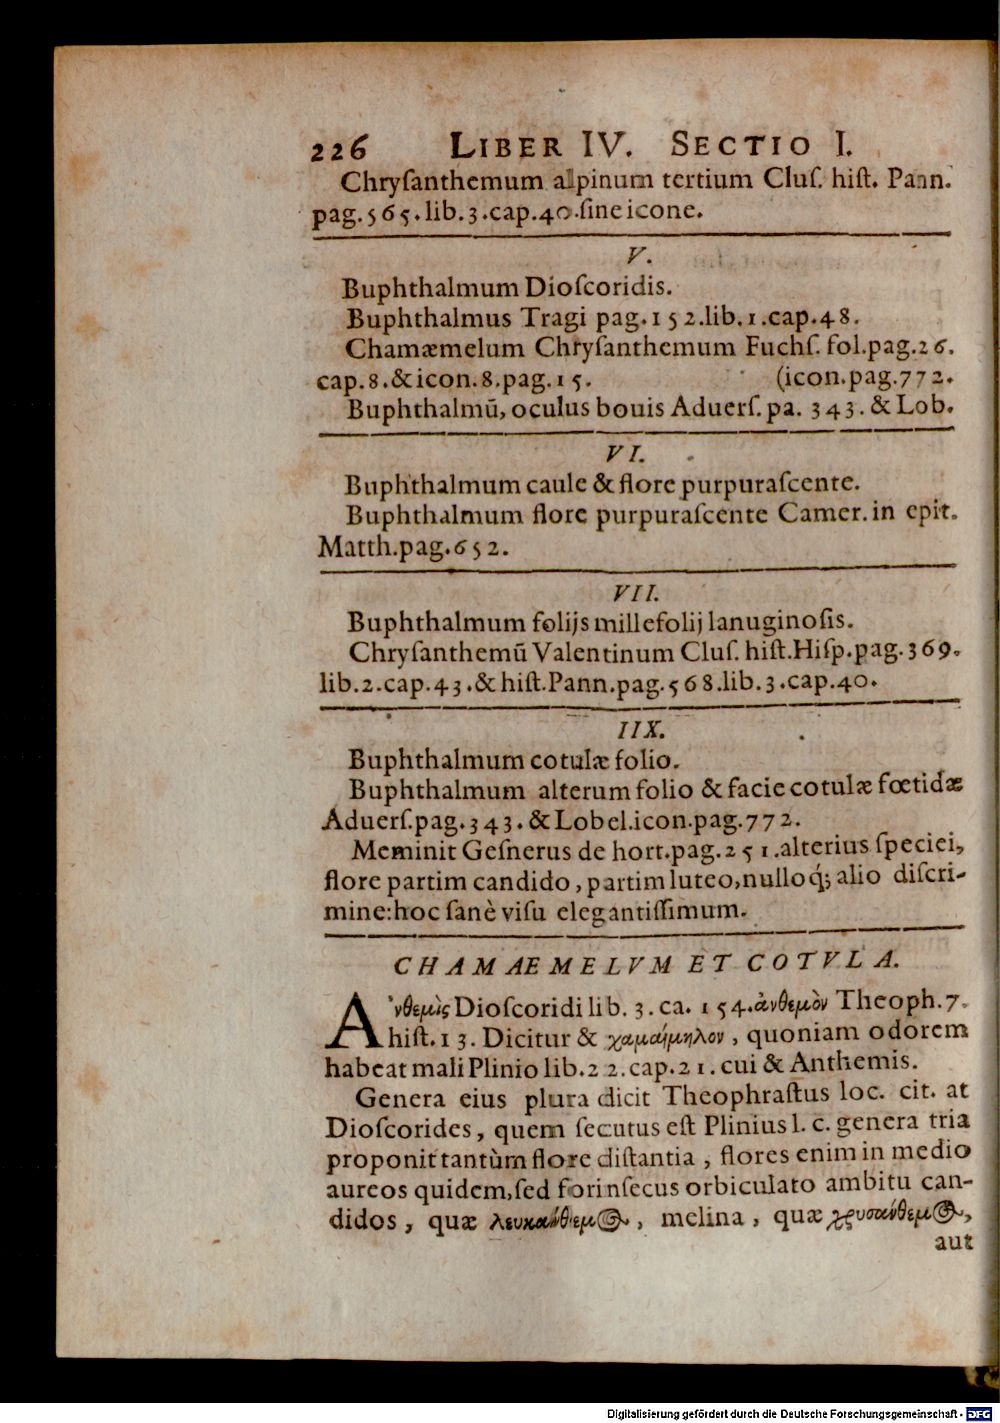 226 LIBER IV. SECTIO I.
Chryſanthemum alpinum tertium Cluſ. hiſt. Pann.
pag.565.lib.3.cap.40.ſine icone.
V.
Buphthalmum Dioſcoridis.
Buphthalmus Tragi pag.152.lib.1.cap.48.
Chamæmelum Chryſanthemum Fuchſ. fol.pag.26.
cap.8.& icon.8.pag.15. (icon.pag.772.
Buphthalmū, oculus bouis Aduerſ.pa. 343.& Lob.
VI.
Buphthalmum caule & flore purpuraſcente.
Buphthalmum flore purpuraſcente Camer. in epit.
Matth.pag.652.
VII.
Buphthalmum folijs millefolij lanuginoſis.
Chryſanthemū Valentinum Cluſ. hiſt.Hiſp.pag.369.
lib.2.cap.43.& hiſt.Pann.pag.568.lib.3.cap.40.
IIX.
Buphthalmum cotulæ folio.
Buphthalmum alterum folio & facie cotulæ fœtidæ
Aduerſ.pag.343.& Lobel.icon.pag.772.
Meminit Geſnerus de hort.pag.251.alterius ſpeciei,
flore partim candido, partim luteo, nulloq́; alio diſcri-
mine: hoc ſanè viſu elegantiſſimum.
CHAMAEMELVM ET COTVLA.
Ἀνθεμὶς Dioſcoridi lib. 3. ca. 154. ἀνθεμὸν Theoph.7.
hiſt.13. Dicitur & χαμαίμηλον, quoniam odorem
habeat mali Plinio lib.22.cap.21. cui & Anthemis.
Genera eius plura dicit Theophraſtus loc. cit. at
Dioſcorides, quem ſecutus eſt Plinius l. c. genera tria
proponit tantùm flore diſtantia, flores enim in medio
aureos quidem, ſed forinſecus orbiculato ambitu can-
didos, quæ λευκάνθεμος, melina, quæ χρυσάνθεμος,
aut
Digitalisierung gefördert durch die Deutsche Forschungsgemeinschaft - DFG